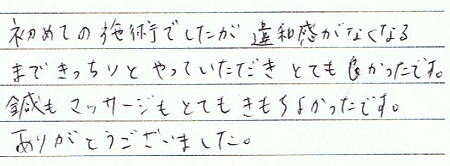 初めての施術でしたが違和感がなくなる
まできっちりとやっていただきとても良かったです。
鍼もマッサージもとてもきもちよかったです。
ありがとうございました。